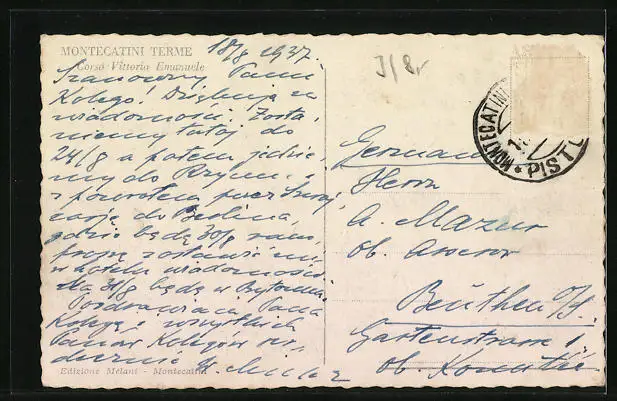 MONTECATINI TERME
18/8 1937.
Corso Vittorio Emanuele
Szanowny Panie
Kolego! Dziękuję za
wiadomości. Zosta,
niemy tutaj do
24/8 a potem jedzie,
my do Rzymu a
z powrotem przez Szwaj,
carję do Berlina,
gdzie będę 30/8 rano,
proszę zostawić mi
w hotelu wiadomość.
31/8 będę w Bytomiu
Pozdrawiam Pana
Kolegę i wszystkich
Panów Kolegów ser,
decznie
Edizione Melani - Montecatini
J/8r
MONTECATINI
PIST
Germania
Herrn
A. Mazur
ob. Asesor
Beuthen O/S.
Gartenstrasse 1,
ob.